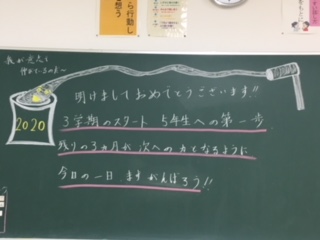 ら行動し
想う
我が家だと
2020
明けましておめでとうございます!!
3学期のスタート 5年生への第一歩
残りの3ヵ月が 次への力となるように
今日の一日 まず がんばろう!!